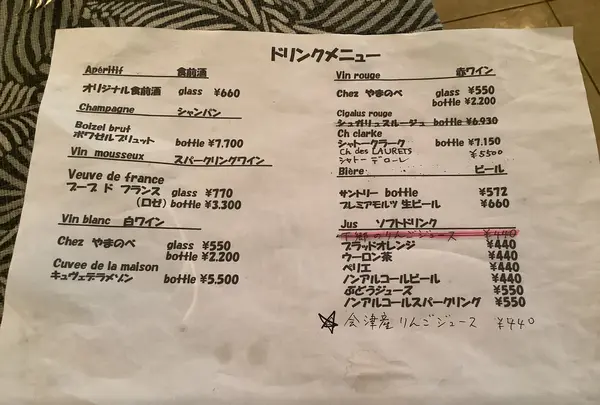 ドリンクメニュー
Apéritif 食前酒
オリジナル食前酒 glass ¥660
Champagne シャンパン
Boizel brut
ボワゼルブリュット bottle ¥7.700
Vin mousseux スパークリングワイン
Veuve de france
ブーブ ド フランス glass ¥770
(ロゼ) bottle ¥3.300
Vin blanc 白ワイン
Chez やまのべ glass ¥550
bottle ¥2.200
Cuvee de la maison
キュヴェデラメゾン bottle ¥5.500
Vin rouge 赤ワイン
Chez やまのべ glass ¥550
bottle ¥2.200
Cigalus rouge
シュガリュスルージュ bottle ¥6.930
Ch clarke
シャトークラーク bottle ¥7.150
Ch des LAURETS
シャトー デローレ ¥5500
Bière ビール
サントリー bottle ¥572
プレミアモルツ 生ビール ¥660
Jus ソフトドリンク
のりんごジュース ¥440
ブラッドオレンジ ¥440
ウーロン茶 ¥440
ペリエ ¥440
ノンアルコールビール ¥440
ぶどうジュース ¥550
ノンアルコールスパークリング ¥550
☆ 会津産りんごジュース ¥440